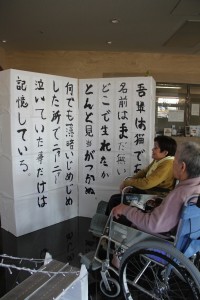 吾輩は猫で
名前はまだ無い
どこで生れたか
とんと見当がつかぬ
何でも薄暗いじめじめ
した所でニャーニャー
泣いていた事だけは
記憶している。